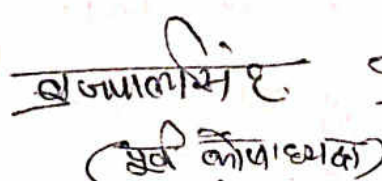 ब्रजपालसिंह
(पूर्व कोषाध्यक्ष)